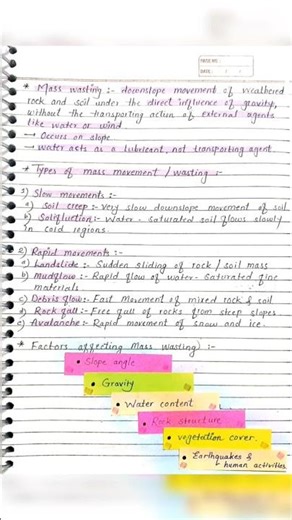 PAGE NO.:
DATE: / /
* Mass wasting :- downslope movement of weathered
rock and soil under the direct influence of gravity,
without the transporting action of external agents
like water or wind
→ Occurs on slope
→ water acts as a lubricant, not transporting agent.
* Types of mass movement / wasting :-
1) Slow movements :-
a) Soil creep :- Very slow downslope movement of soil
b) Solifluction :- Water - saturated soil flows slowly
in cold regions
2) Rapid movements :-
a) Landslide :- Sudden sliding of rock / soil mass
b) Mudflow :- Rapid flow of water - saturated fine
materials
c) Debris flow :- Fast movement of mixed rock & soil
d) Rock fall :- Free fall of rocks from steep slopes
e) Avalanche :- Rapid movement of snow and ice.
* Factors affecting Mass wasting :-
• Slope angle
• Gravity
• Water content
• Rock structure
• vegetation cover
• Earthquakes &
human activities.